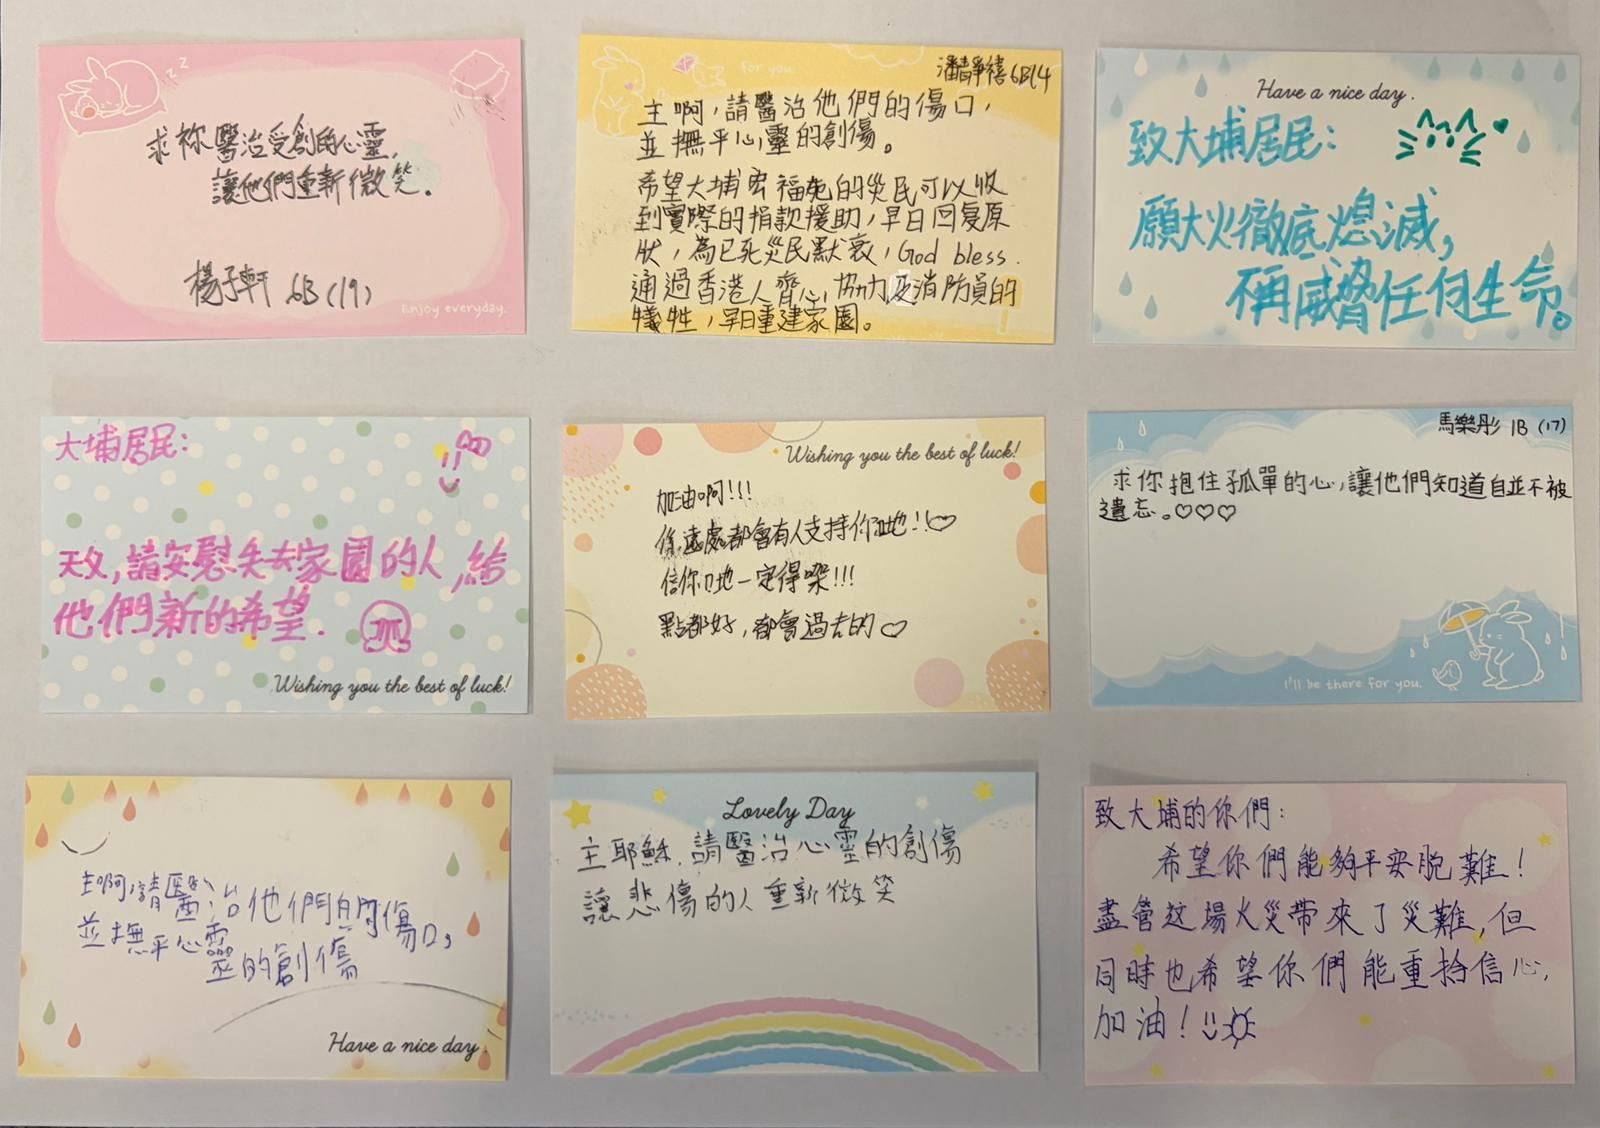 求祢醫治受創的心靈,
讓他們重新微笑.
楊子軒 6B(19)
Enjoy everyday.
for you
潘靜禧 6B14
主啊,請醫治他們的傷口,
並撫平心靈的創傷。
希望大埔宏福苑的災民可以收
到實際的捐款援助,早日回复原
狀,為已死災民默哀,God bless.
通過香港人齊心協力及消防員的
犧牲,早日重建家園。
Have a nice day.
致大埔居民:
願大火徹底熄滅,
不再威脅任何生命。
大埔居民:
天父,請安慰失去家園的人,給
他們新的希望.
Wishing you the best of luck!
Wishing you the best of luck!
加油啊!!!
係遠處都會有人支持你哋!!♡
信你哋一定得㗎!!!
點都好,都會過去的♡
馬樂彤 1B (17)
求你抱住孤單的心,讓他們知道自並不被
遺忘。♡♡♡
I'll be there for you.
主啊,請醫治他們的傷口,
並撫平心靈的創傷
Have a nice day.
Lovely Day
主耶穌,請醫治心靈的創傷
讓悲傷的人重新微笑
致大埔的你們:
希望你們能夠平安脫難!
盡管这場火災帶來了災難,但
同時也希望你們能重拾信心,
加油!